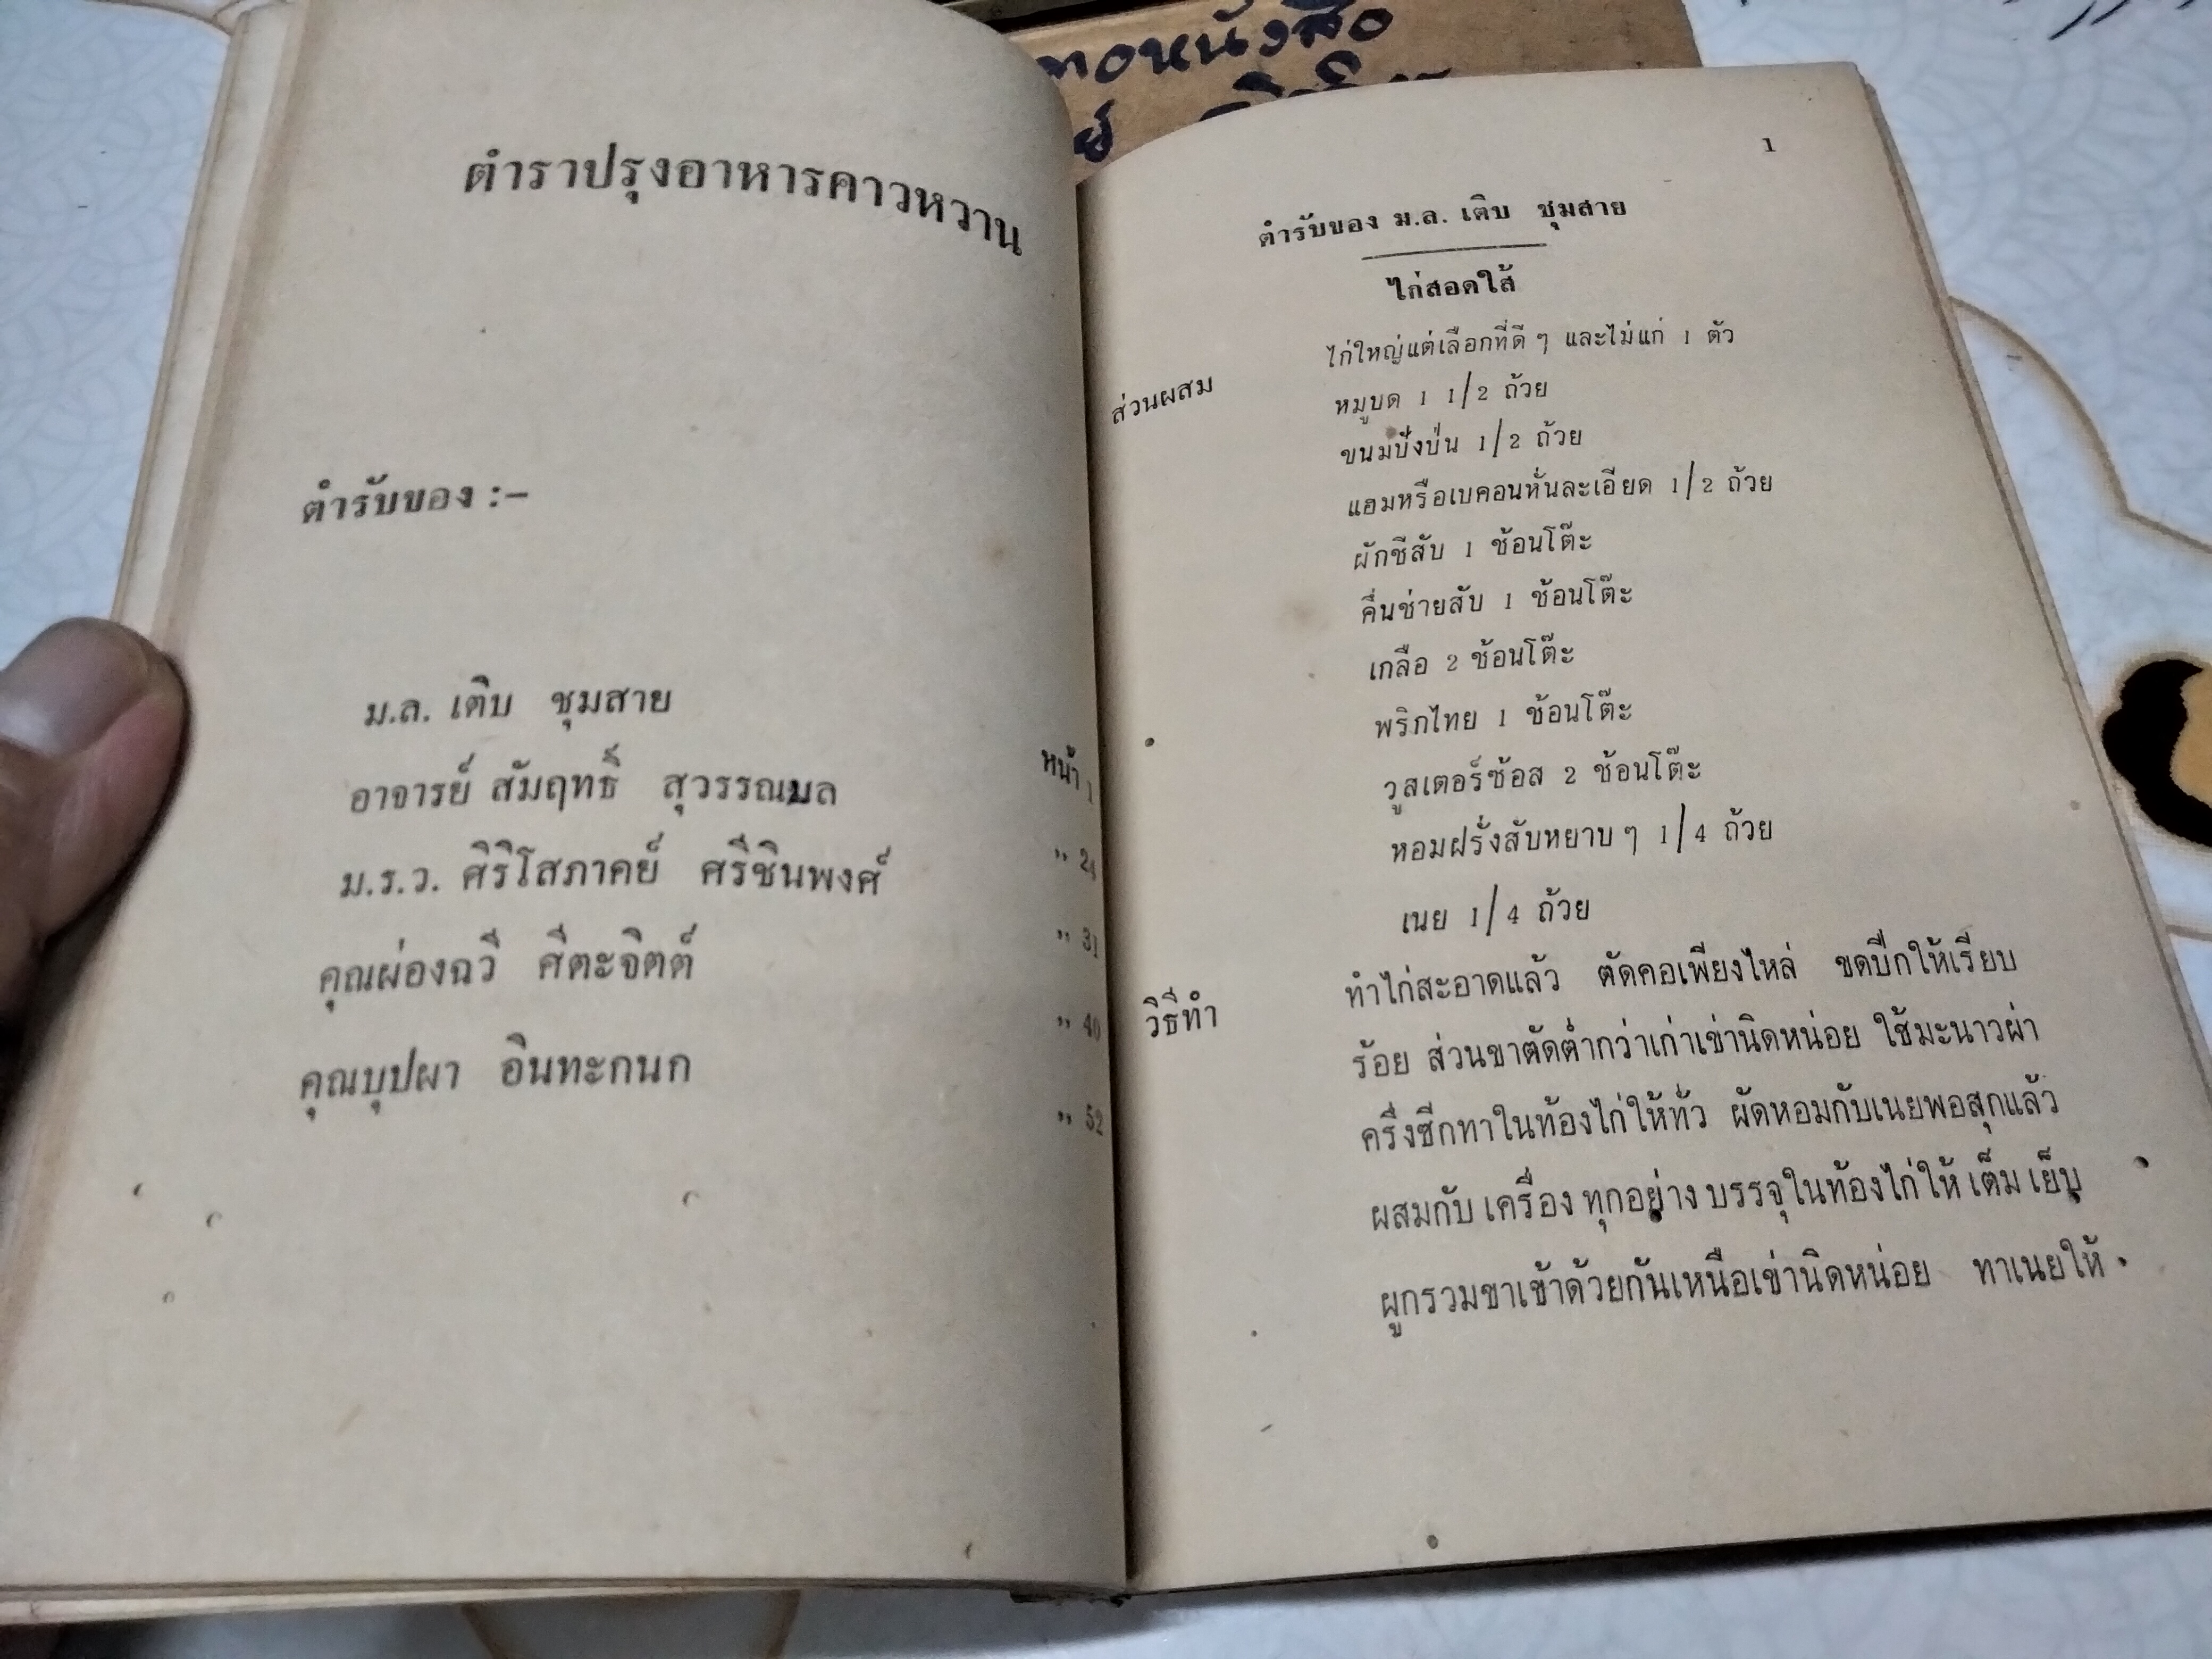 ตำราปรุงอาหารคาวหวาน
ตำรับของ :–
ม.ล. เติบ ชุมสาย หน้า 1
อาจารย์ สัมฤทธิ์ สุวรรณมล " 24
ม.ร.ว. ศิริโสภาคย์ ศรีชินพงศ์ " 31
คุณผ่องฉวี ศีตะจิตต์ " 40
คุณบุปผา อินทะกนก " 52
หนังสือ
1
ตำรับของ ม.ล. เติบ ชุมสาย
ไก่สอดใส้
ส่วนผสม ไก่ใหญ่แต่เลือกที่ดี ๆ และไม่แก่ 1 ตัว
หมูบด 1 1/2 ถ้วย
ขนมปังป่น 1/2 ถ้วย
แฮมหรือเบคอนหั่นละเอียด 1/2 ถ้วย
ผักชีสับ 1 ช้อนโต๊ะ
คื่นช่ายสับ 1 ช้อนโต๊ะ
เกลือ 2 ช้อนโต๊ะ
พริกไทย 1 ช้อนโต๊ะ
วูสเตอร์ซ้อส 2 ช้อนโต๊ะ
หอมฝรั่งสับหยาบ ๆ 1/4 ถ้วย
เนย 1/4 ถ้วย
วิธีทำ ทำไก่สะอาดแล้ว ตัดคอเพียงไหล่ ขดปีกให้เรียบ
ร้อย ส่วนขาตัดต่ำกว่าเก่าเข่านิดหน่อย ใช้มะนาวผ่า
ครึ่งซีกทาในท้องไก่ให้ทั่ว ผัดหอมกับเนยพอสุกแล้ว
ผสมกับ เครื่อง ทุกอย่าง บรรจุในท้องไก่ให้ เต็ม เย็บ
ผูกรวมขาเข้าด้วยกันเหนือเข่านิดหน่อย ทาเนยให้